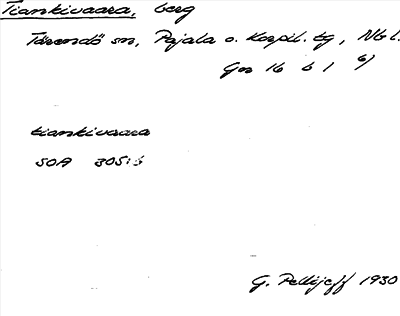 Tiankivaara, berg
Tärendö sn, Pajala o. Korpil. tg, Nb l.
Gn 16 b 1 6)
tiankivaara
SOA 305:5
G. Pellijeff 1930